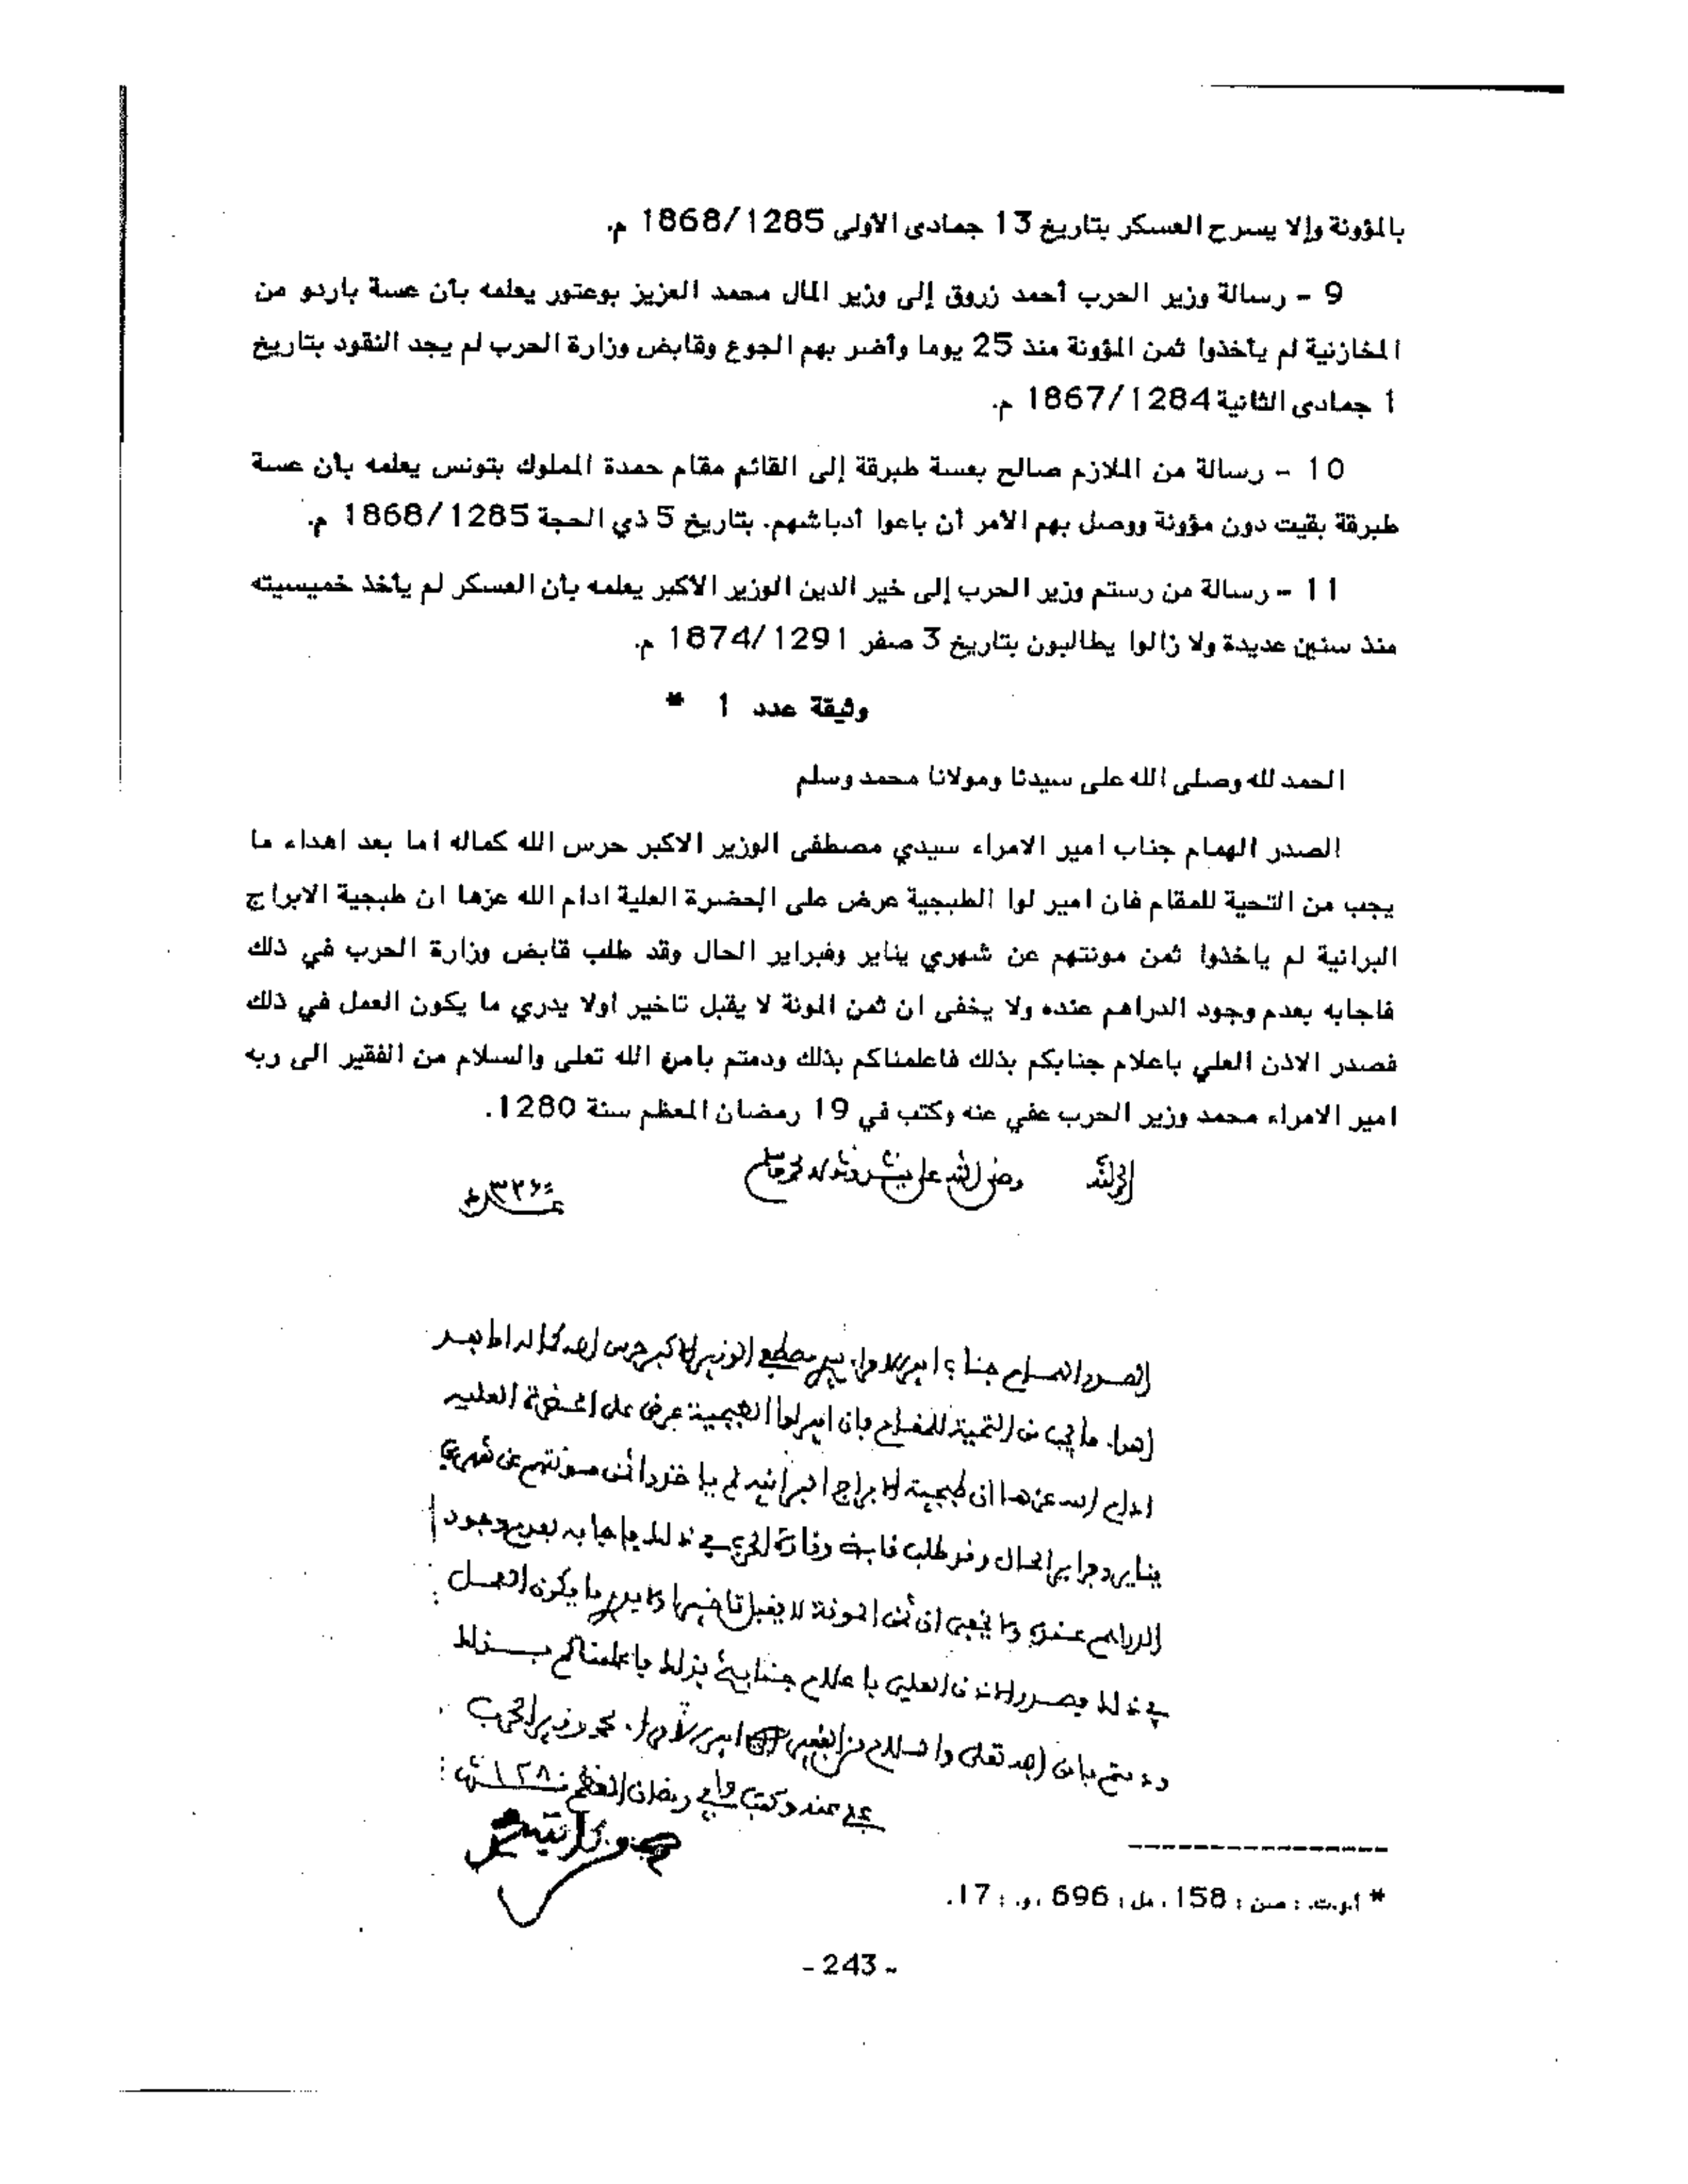 بالمؤونة وإلا يسرح العسكر بتاريخ 13 جمادى الاولى 1868/1285 م.
9 - رسالة وزير الحرب أحمد زروق إلى وزير المال محمد العزيز بوعتور يعلمه بأن عسة باردو من
المخازنية لم يأخذوا ثمن المؤونة منذ 25 يوما وأضر بهم الجوع وقابض وزارة الحرب لم يجد النقود بتاريخ
1 جمادى الثانية 1867/1284 م.
10 - رسالة من الملازم صالح بعسة طبرقة إلى القائم مقام حمدة المملوك بتونس يعلمه بأن عسة
طبرقة بقيت دون مؤونة ووصل بهم الأمر أن باعوا أدباشهم. بتاريخ 5 ذي الحجة 1868/1285 م.
11 - رسالة من رستم وزير الحرب إلى خير الدين الوزير الأكبر يعلمه بأن العسكر لم يأخذ خميسيته
منذ سنين عديدة ولا زالوا يطالبون بتاريخ 3 صفر 1874/1291 م.
وثيقة عدد 1 *
الحمد لله وصلى الله على سيدنا ومولانا محمد وسلم
الصدر الهمام جناب امير الامراء سيدي مصطفى الوزير الاكبر حرس الله كماله اما بعد اهداء ما
يجب من التحية للمقام فان امير لوا الطبجية عرض على الحضرة العلية ادام الله عزها ان طبجية الابراج
البرانية لم ياخذوا ثمن مونتهم عن شهري يناير وفبراير الحال وقد طلب قابض وزارة الحرب في ذلك
فاجابه بعدم وجود الدراهم عنده ولا يخفى ان ثمن المونة لا يقبل تاخير اولا يدري ما يكون العمل في ذلك
فصدر الاذن العلي باعلام جنابكم بذلك فاعلمناكم بذلك ودمتم بامن الله تعلى والسلام من الفقير الى ربه
امير الامراء محمد وزير الحرب عفي عنه وكتب في 19 رمضان المعظم سنة 1280.
الحمد لله وصلى الله على سيدنا ومولانا محمد وسلم
الصدر الهمام جناب امير الامراء سيدي مصطفى الوزير الاكبر حرس الله كماله اما بعد
اهداء ما يجب من التحية للمقام فان امير لوا الطبجية عرض على الحضرة العلية
ادام الله عزها ان طبجية الابراج البرانية لم ياخذوا ثمن مونتهم عن شهري
يناير وفبراير الحال وقد طلب قابض وزارة الحرب في ذلك فاجابه بعدم وجود
الدراهم عنده ولا يخفى ان ثمن المونة لا يقبل تاخيرا ولا يدري ما يكون العمل
في ذلك فصدر الاذن العلي باعلام جنابكم بذلك فاعلمناكم بذلك
ودمتم بامن الله تعلى والسلام من الفقير امير الامراء محمد وزير الحرب
عفي عنه وكتب في رمضان المعظم سنة ١٢٨٠
* أ.و.ت. : صن : 158، مل : 696، و. : 17.
- 243 -